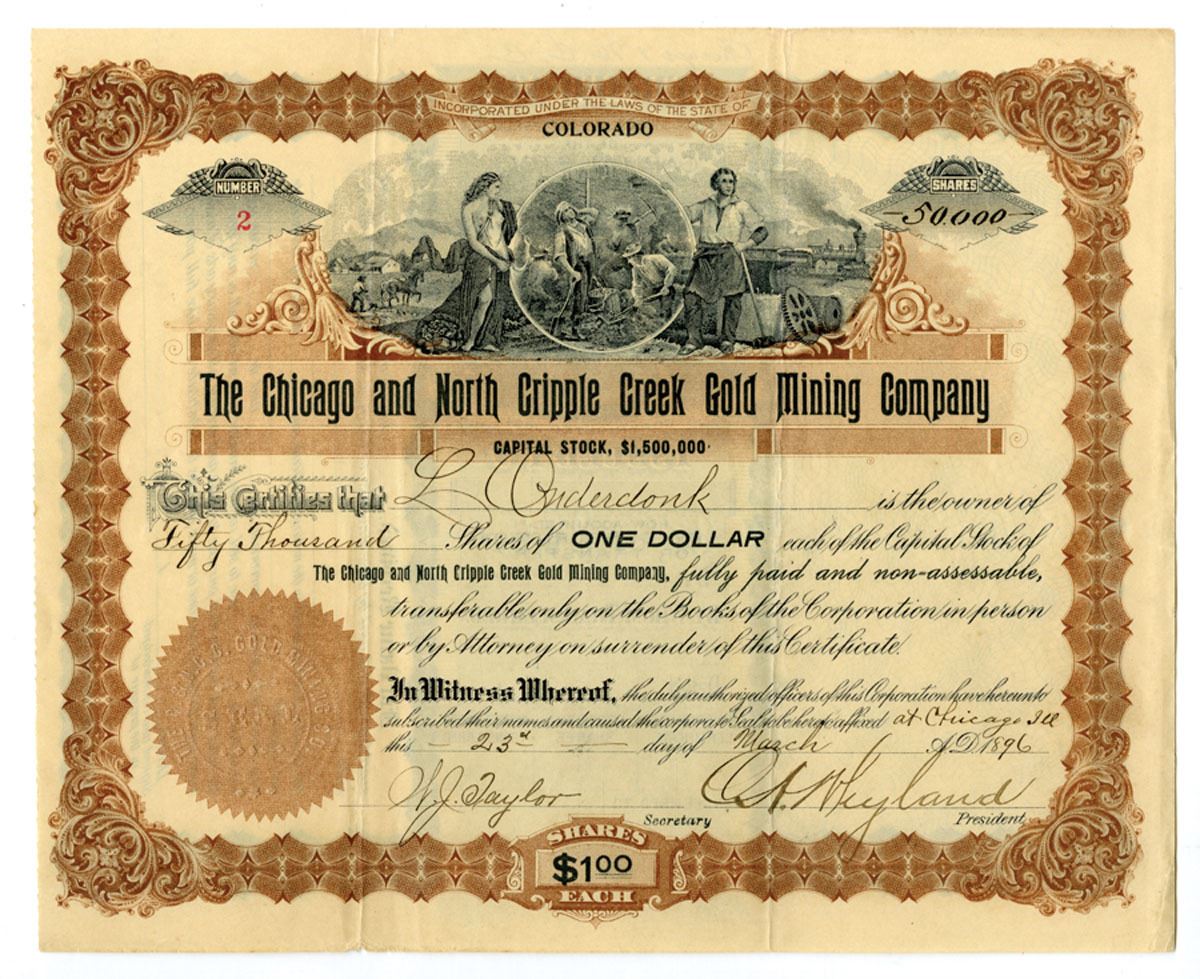 INCORPORATED UNDER THE LAWS OF THE STATE OF
COLORADO
NUMBER
2
SHARES
50.000
The Chicago and North Cripple Creek Gold Mining Company
CAPITAL STOCK, $1,500,000.
This Certifies that L Onderdonk is the owner of
Fifty Thousand Shares of ONE DOLLAR each of the Capital Stock of
The Chicago and North Cripple Creek Gold Mining Company, fully paid and non-assessable,
transferable only on the Books of the Corporation in person
or by Attorney on surrender of this Certificate.
In Witness Whereof, the duly authorized officers of this Corporation have hereunto
subscribed their names and caused the corporate Seal to be hereto affixed at Chicago Ill
this 23rd day of March A.D. 1896
W. J. Taylor
Secretary
President
SHARES
$1.00
EACH